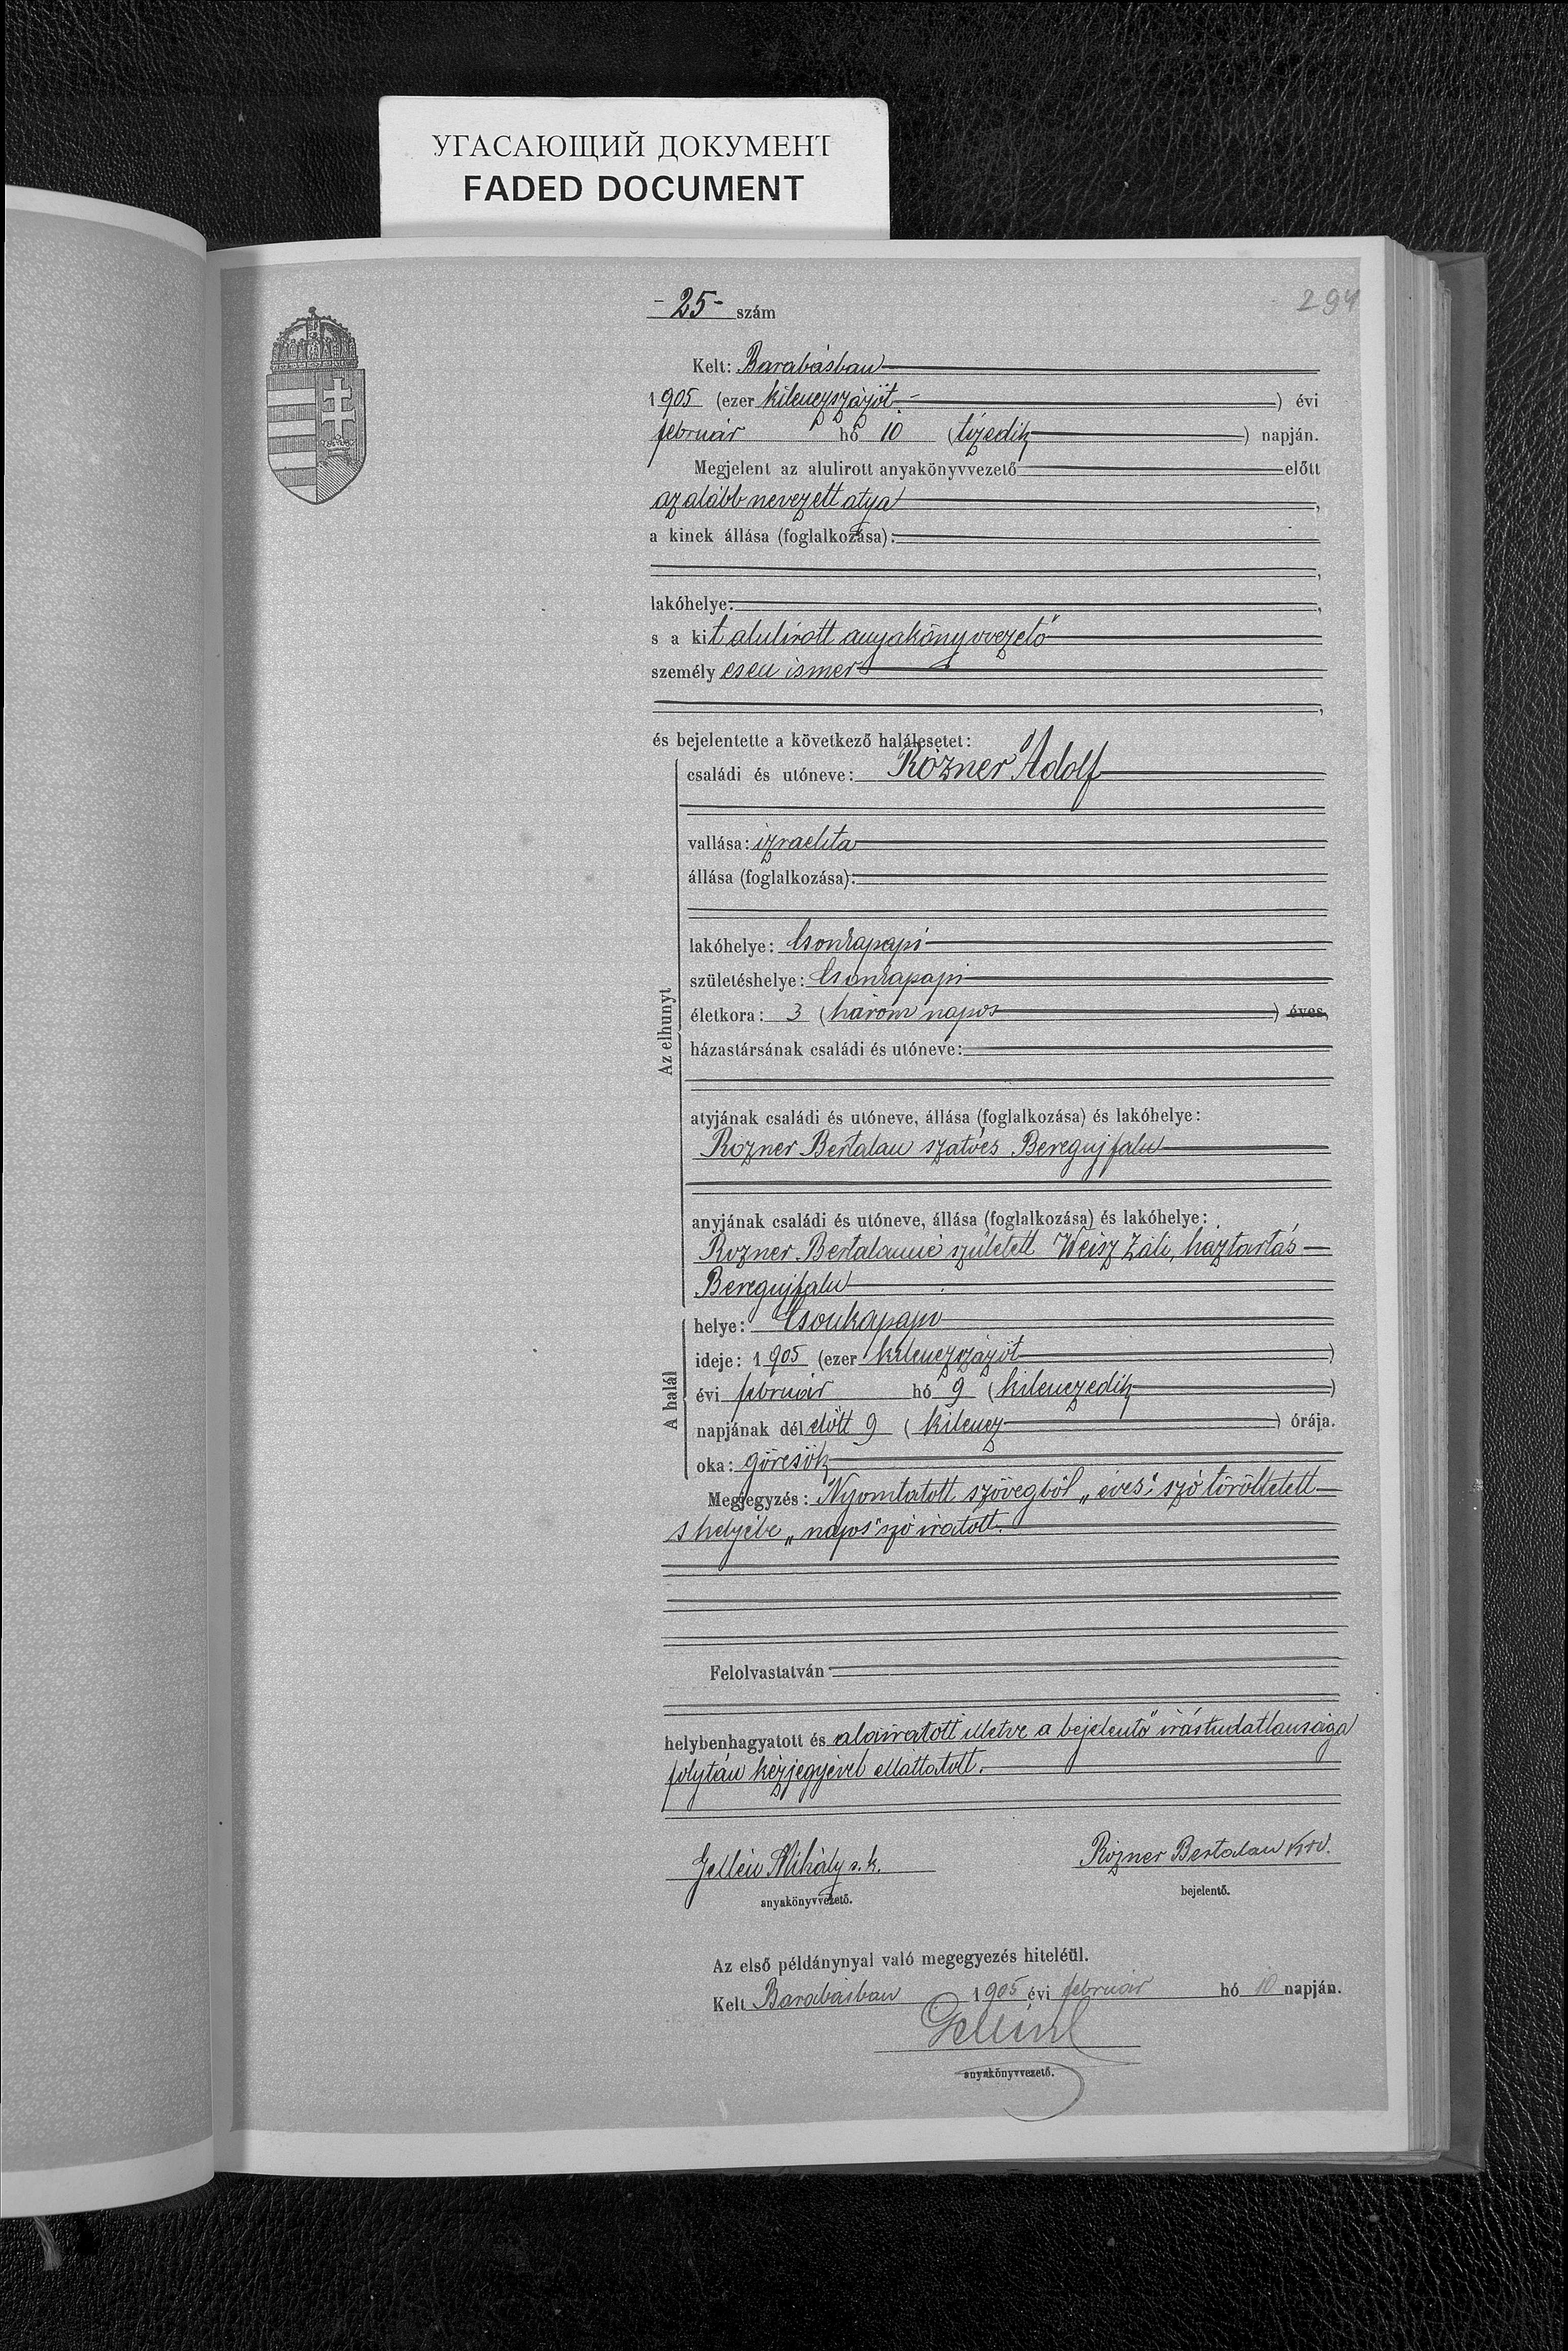 УГАСАЮЩИЙ ДОКУМЕНТ
FADED DOCUMENT
294
- 25 - szám
Kelt: Barabásban
1905 (ezer kilenczszázöt.) évi
február hó 10 (tizedik) napján.
Megjelent az alulirott anyakönyvvezető előtt
az alább nevezett atya,
a kinek állása (foglalkozása):
,
lakóhelye:,
s a kit alulirott anyakönyvvezető
személyesen ismer
,
és bejelentette a következő halálesetet:
Az elhunyt
családi és utóneve: Rózner Adolf
vallása: izraelita
állása (foglalkozása):
lakóhelye: Csonkapapi
születéshelye: Csonkapapi
életkora: 3 (három napos) éves,
házastársának családi és utóneve:
atyjának családi és utóneve, állása (foglalkozása) és lakóhelye:
Rozner Bertalan szatócs Beregujfalu
anyjának családi és utóneve, állása (foglalkozása) és lakóhelye:
Rozner Bertalanné született Weisz Záli, háztartás
Beregujfalu
A halál
helye: Csonkapapi
ideje: 1905 (ezer kilenczszázöt)
évi február hó 9 (kilenczedik)
napjának dél előtt 9 (kilencz) órája.
oka: görcsök
Megjegyzés: Nyomtatott szövegből „éves" szó töröltetett
s helyébe „napos" szó iratott.
Felolvastatván
helybenhagyatott és aláiratott illetve a bejelentő irástudatlansága
folytán kézjegyével elláttatott.
Gellén Mihály s. k. Rózner Bertalan
anyakönyvvezető. bejelentő.
Az első példánynyal való megegyezés hiteléül.
Kelt Barabásban 1905 évi február hó 10 napján.
anyakönyvvezető.